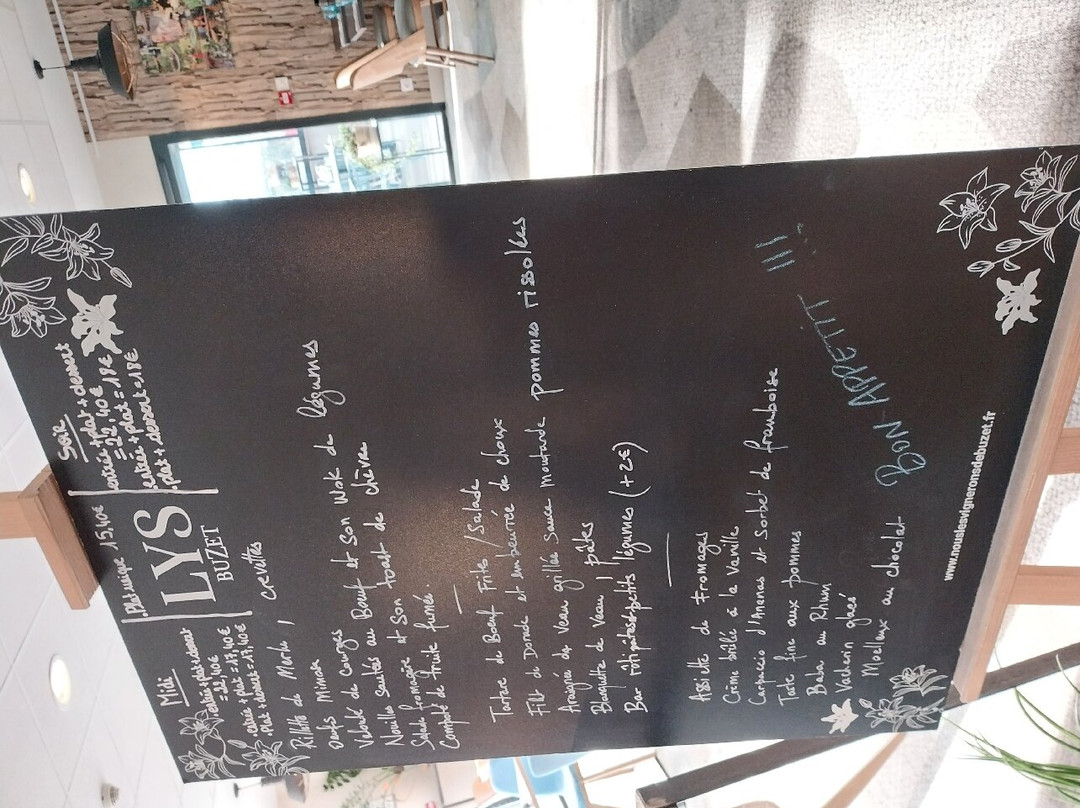 Midi
entrée+plat+dessert
= 22,40€
• entrée + plat = 17,40€
• Plat + dessert = 17,40€
• Plat unique 15,40€
LYS
BUZET
Soir
entrée+plat+dessert
= 22,40€
entrée + plat = 18€
plat + dessert = 18€
Rillette de Merlu / crevettes
Oeufs Mimosa
Velouté de Courges
Nouilles Sautées au Boeuf et Son Wok de légumes
Salade fromagère et Son toast de chèvre
Compoté de truite fumée.
Tartare de Boeuf Frites / Salade
Filet de Dorade et embeurrée de choux
Araignée de veau grillée sauce moutarde pommes rissolées
Blanquette de Veau / pâtes
Bar petits légumes (+2€)
Assiette de Fromages
Crème brûlée à la Vanille
Carpaccio d'Ananas et Sorbet de framboise
Tarte fine aux pommes
Baba au Rhum
Vacherin glacé
Moelleux au chocolat
BON APPETIT !!!
www.nouslesvigneronsdebuzet.fr